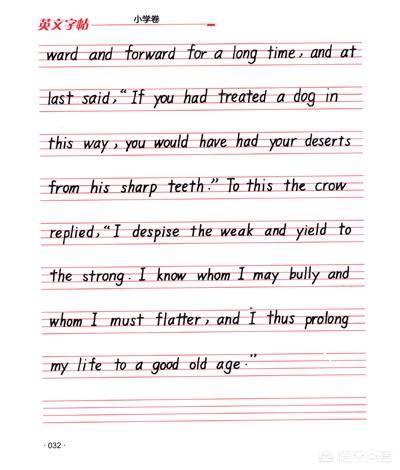 英文字帖
小学卷
ward and forward for a long time, and at
last said, “If you had treated a dog in
this way, you would have had your deserts
from his sharp teeth.” To this the crow
replied, “I despise the weak and yield to
the strong. I know whom I may bully and
whom I must flatter, and I thus prolong
my life to a good old age.”
·032·
悟空问答